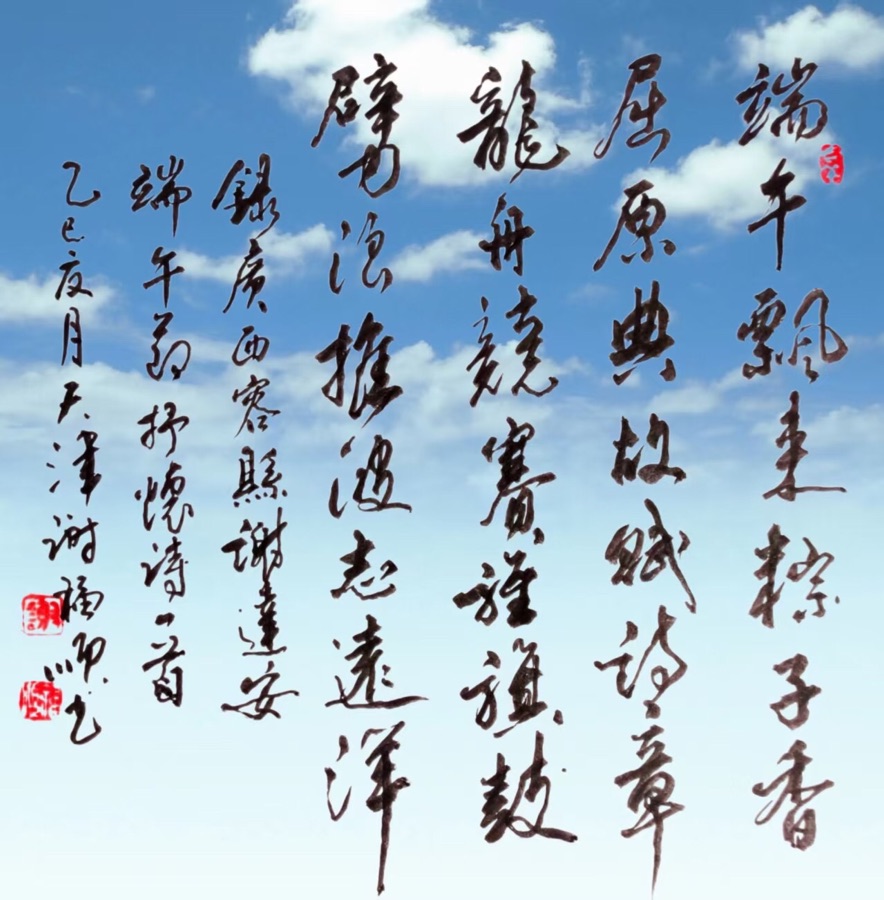 端午飄来粽子香
屈原典故賦詩章
龍舟競賽雄旗鼓
劈浪推波志遠洋
録廣西容縣謝達安
端午節抒懷詩一首
乙巳夏月天津謝福順书